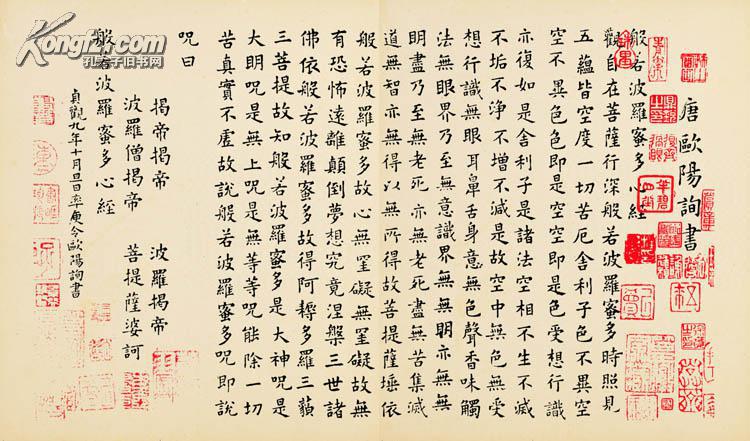 Kongfz.com
孔夫子旧书网
唐歐陽詢書
般若波羅蜜多心經
觀自在菩薩行深般若波羅蜜多時照見
五蘊皆空度一切苦厄舍利子色不異空
空不異色色即是空空即是色受想行識
亦復如是舍利子是諸法空相不生不滅
不垢不淨不增不減是故空中無色無受
想行識無眼耳鼻舌身意無色聲香味觸
法無眼界乃至無意識界無無明亦無無
明盡乃至無老死亦無老死盡無苦集滅
道無智亦無得以無所得故菩提薩埵依
般若波羅蜜多故心無罣礙無罣礙故無
有恐怖遠離顛倒夢想究竟涅槃三世諸
佛依般若波羅蜜多故得阿耨多羅三藐
三菩提故知般若波羅蜜多是大神呪是
大明呪是無上呪是無等等呪能除一切
苦真實不虛故說般若波羅蜜多呪即說
呪曰
揭帝揭帝 波羅揭帝
波羅僧揭帝 菩提薩婆訶
般若波羅蜜多心經
貞觀九年十月旦日率更令歐陽詢書